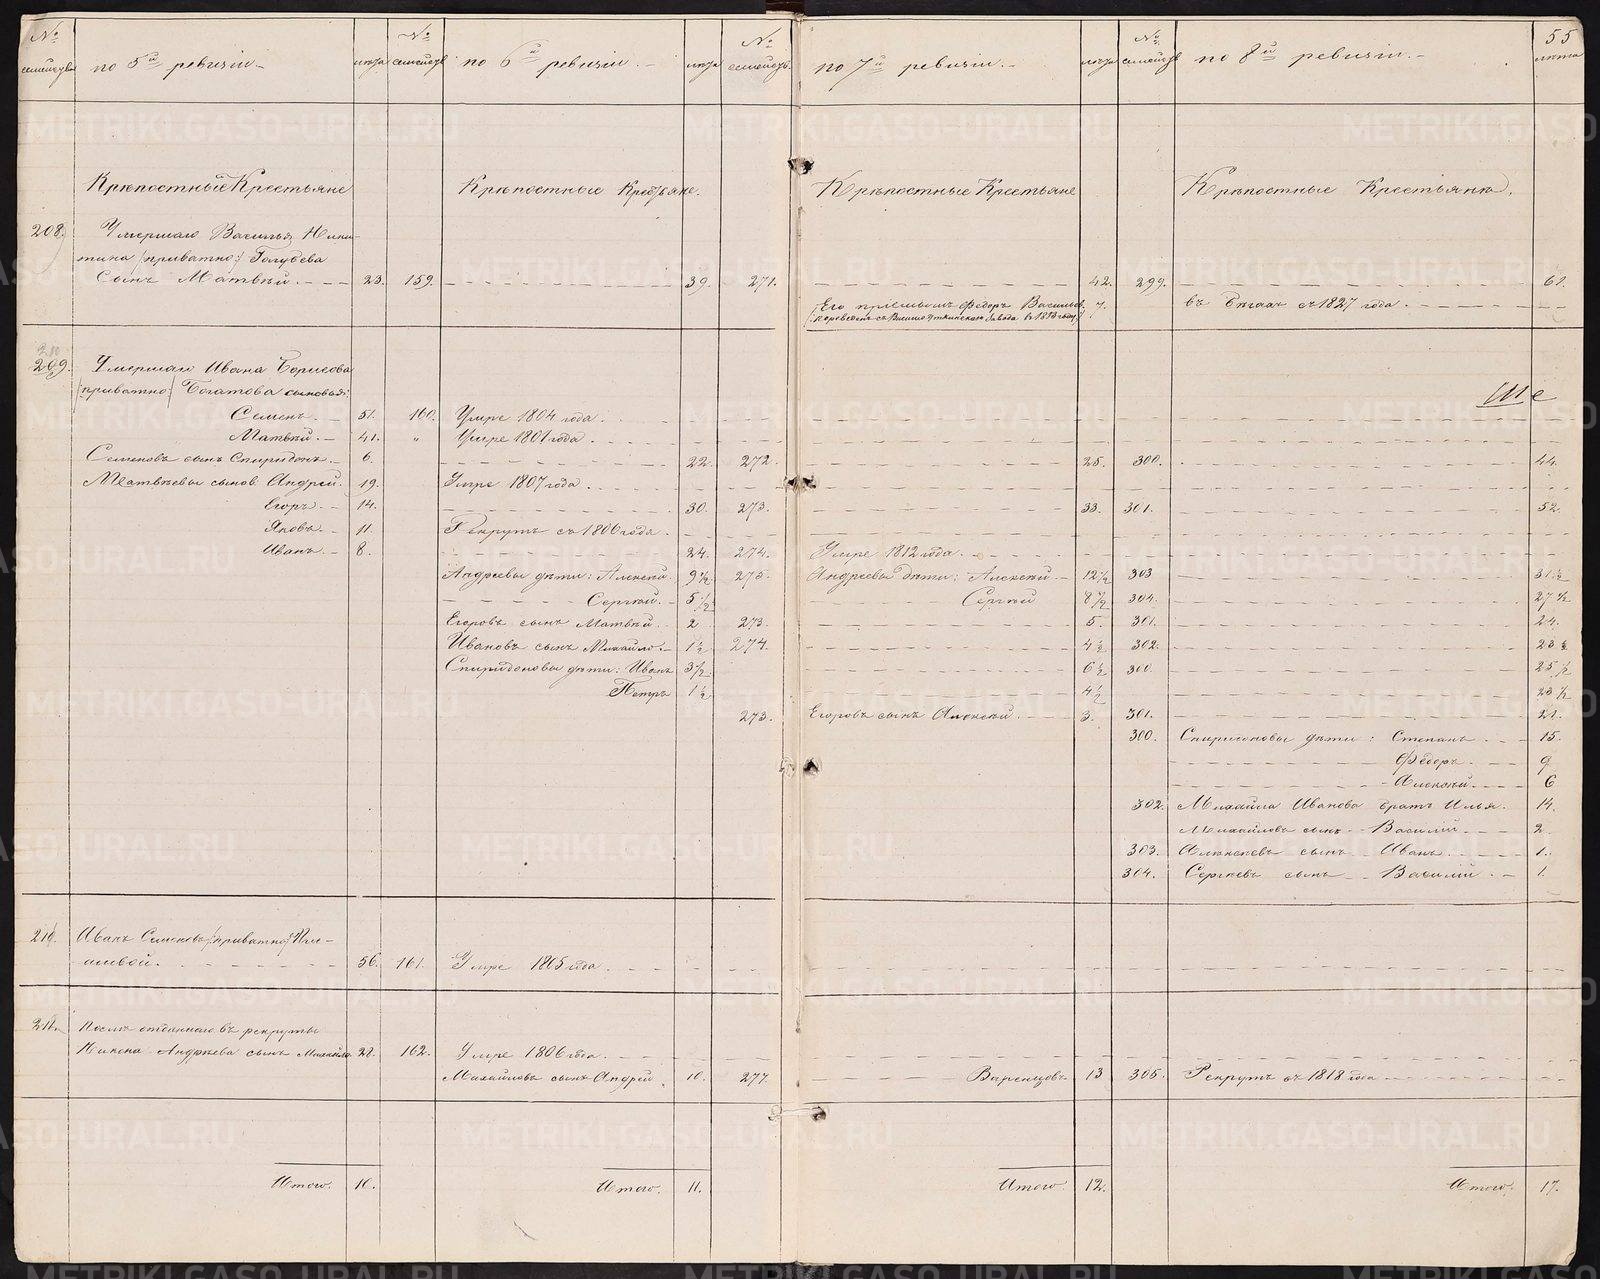 № семействъ по 5й ревизiи. лѣта № семействъ по 6й ревизiи. лѣта № семействъ по 7й ревизiи. лѣта № семействъ по 8й ревизiи. 55 лѣта
Крѣпостные Крестьяне Крѣпостные Крестьяне. Крѣпостные Крестьяне Крѣпостные Крестьяне.
208. Умершаго Василья Ники-
тина /приватно/ Голубева
Сынъ Матвѣй. 23. 159. 39. 271. 42. 299. 61.
Его прiемышъ Федоръ Васильев. 7. въ бѣгахъ съ 1827 года.
209. Умершаго Ивана Борисова
/приватно/ Богатова сыновья:
Семенъ. 51. 160. Умре 1804 года.
Матвѣй. 41. " Умре 1801 года.
Семеновъ сынъ Спиридонъ. 6. 22. 272. 25. 300. 44.
Матвѣевы сынов. Андрей. 19. Умре 1807 года.
Егоръ. 14. 30. 273. 33. 301. 52.
Яковъ. 11. Рекрутъ съ 1806 года.
Иванъ. 8. 24. 274. Умре 1812 года.
Андреевы дѣти: Алексѣй. 9 1/2 275. Андреевы дѣти: Алексѣй. 12 1/2 303 31 1/2
Сергѣй. 5 1/2 Сергѣй 8 1/2 304. 27 1/2
Егоровъ сынъ Матвѣй. 2 273. 5. 301. 24.
Ивановъ сынъ Михайло. 1 1/2 274. 4 1/2 302. 23 1/2
Спиридоновы дѣти: Иванъ 3 1/2 6 1/2 300. 25 1/2
Петръ 1 1/2 4 1/2 23 1/2
273. Егоровъ сынъ Алексѣй. 3. 301. 21.
300. Спиридоновы дѣти: Степанъ 15.
Федоръ. 9
Алексѣй. 6
302. Михайла Иванова братъ Илья. 14.
Михайловъ сынъ Василiй 2
303. Алексѣевъ сынъ Иванъ. 1.
304. Сергѣевъ сынъ Василiй. 1.
210. Иванъ Семеновъ /приватно/
56. 161. Умре 1805 года.
211. Послѣ отданнаго въ рекруты
Никона Андреева сынъ Михайло 28. 162. Умре 1806 года.
Михайловъ сынъ Андрей 10. 277. Варенцовъ 13 305. Рекрутъ съ 1818 года
Итого. 10. Итого. 11. Итого 12. Итого. 17.
METRIKI.GASO-URAL.RU